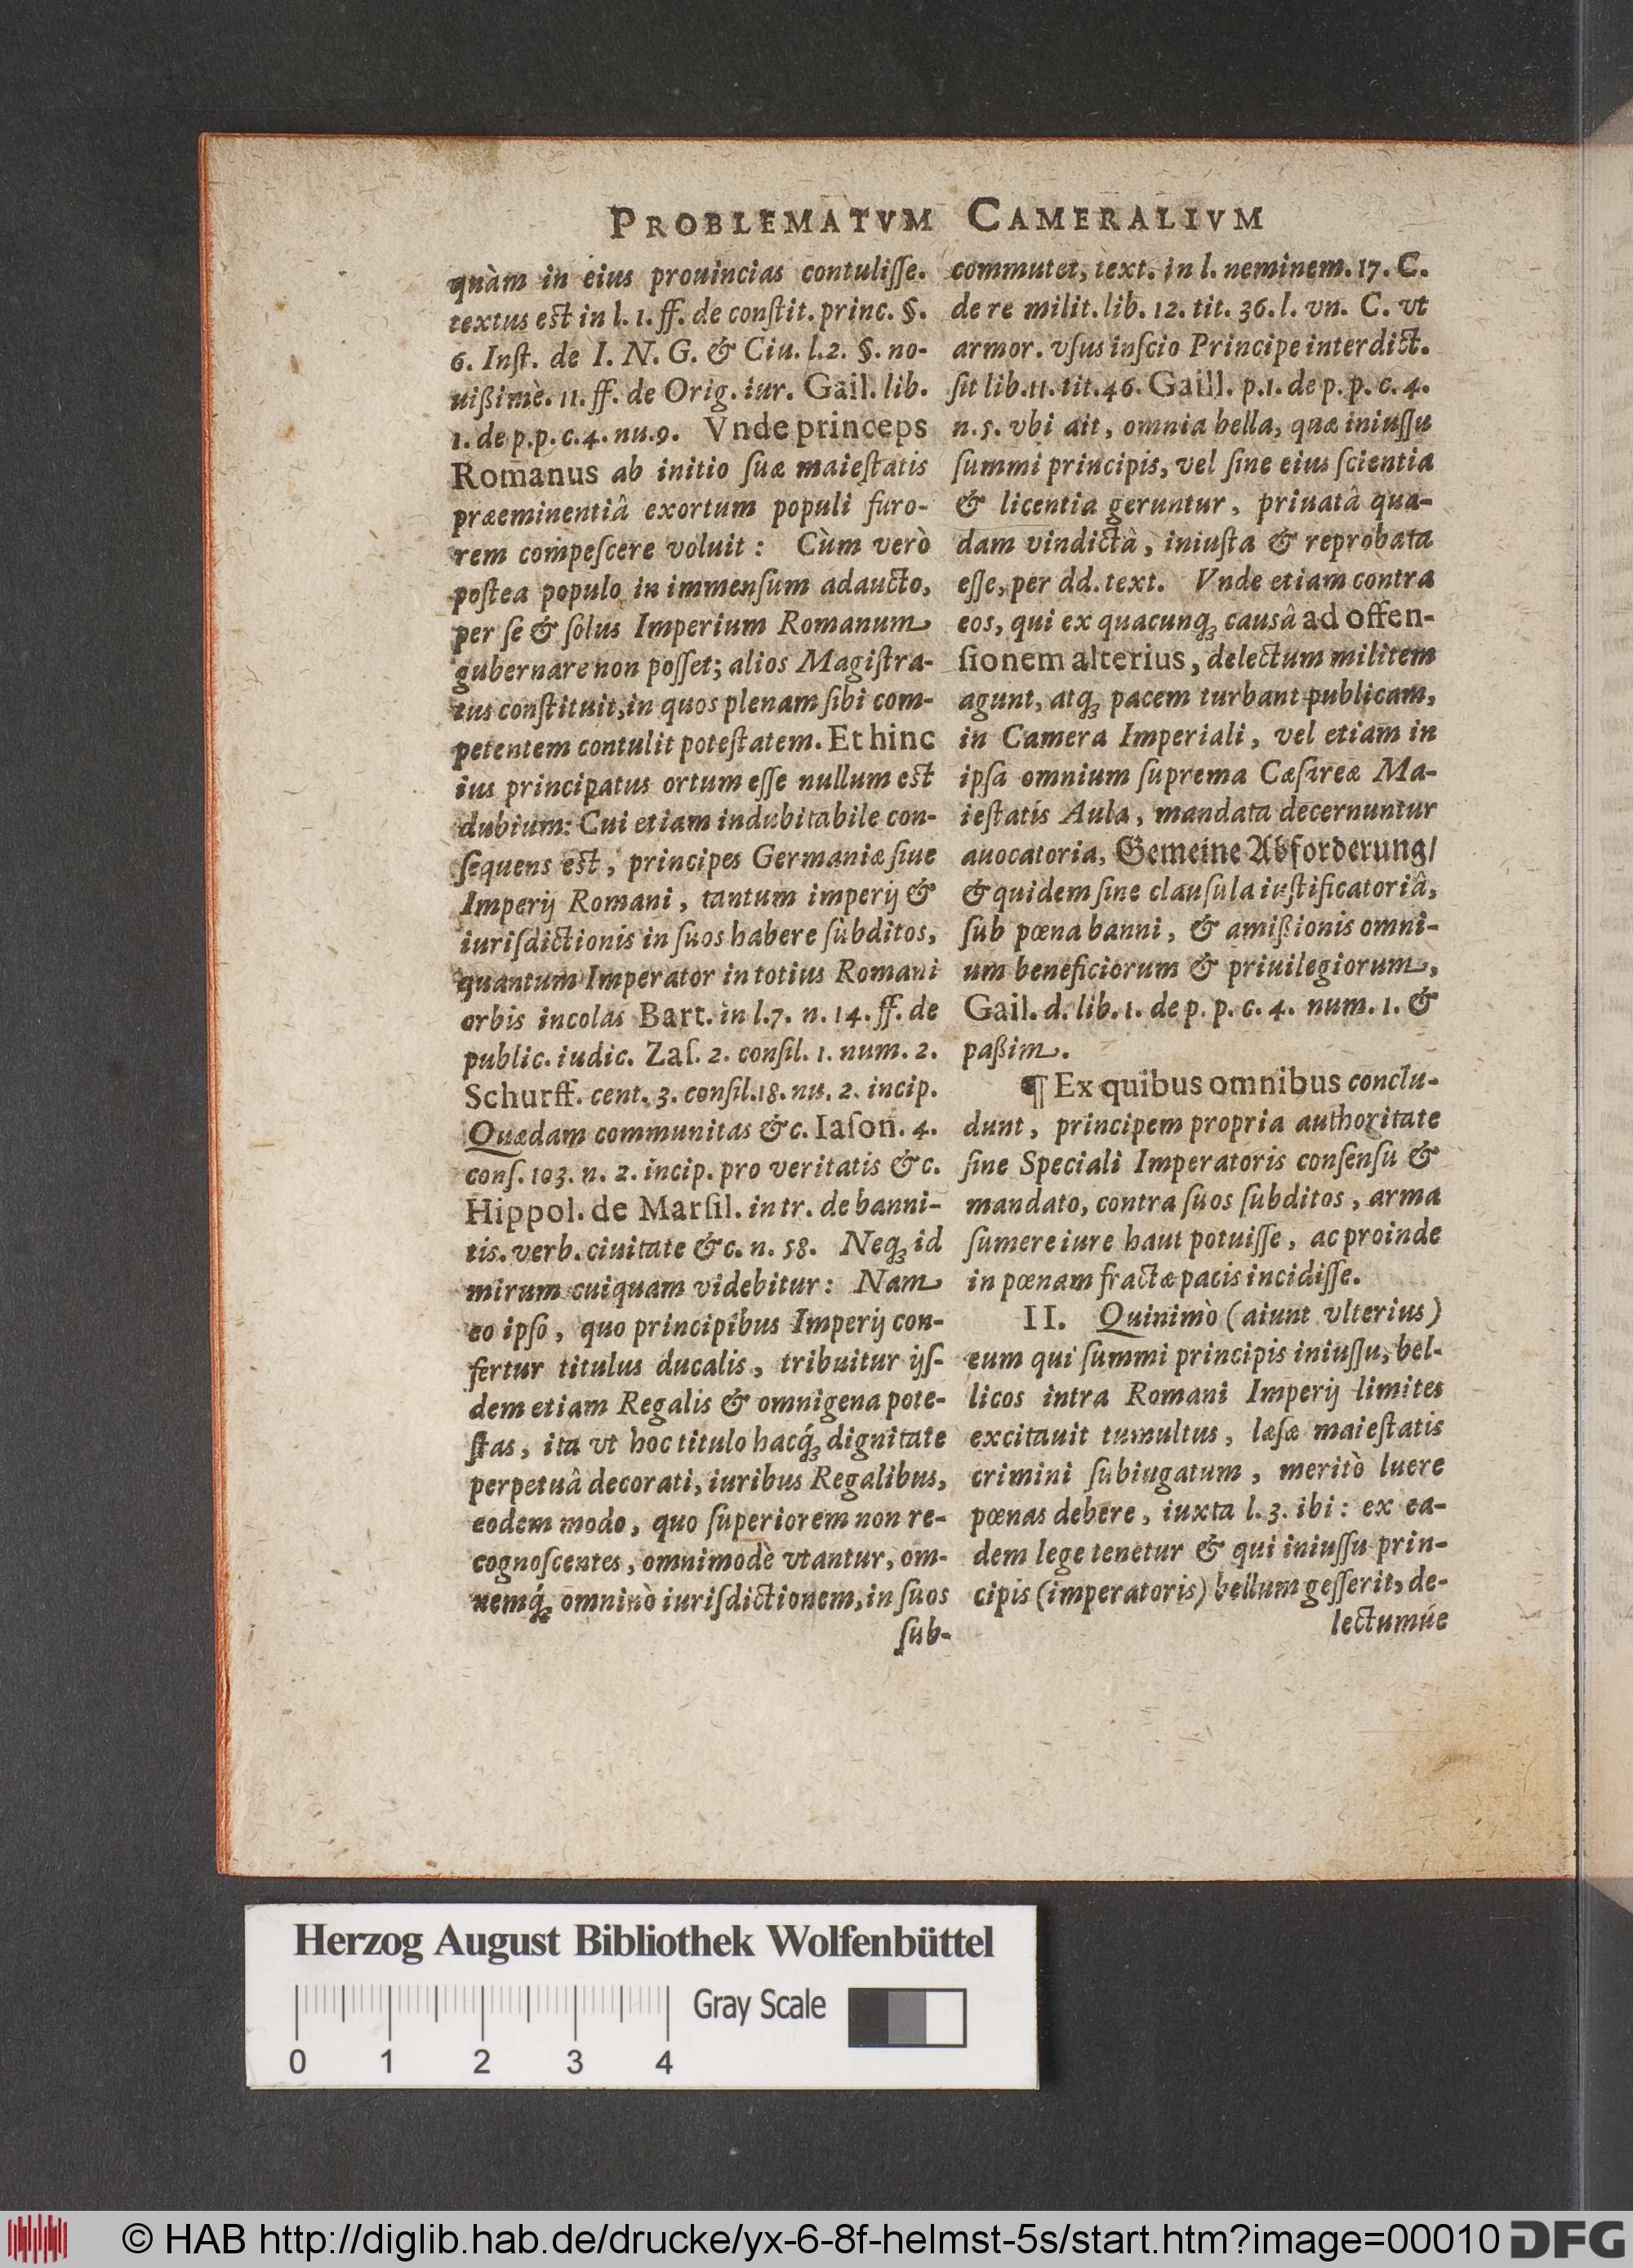 PROBLEMATVM CAMERALIVM
quàm in eius prouincias contuliſſe.
textus eſt in l. 1. ff. de conſtit. princ. §.
6. Inſt. de I. N. G. & Ciu. l.2. §. no-
uißimè. 11. ff. de Orig. iur. Gail. lib.
1. de p.p. c.4. nu.9. Vnde princeps
Romanus ab initio ſuæ maieſtatis
præeminentiâ exortum populi furo-
rem compeſcere voluit: Cùm verò
poſtea populo in immenſum adaucto,
per ſe & ſolus Imperium Romanum
gubernare non poſſet; alios Magiſtra-
tus conſtituit, in quos plenam ſibi com-
petentem contulit poteſtatem. Et hinc
ius principatus ortum eſſe nullum eſt
dubium: Cui etiam indubitabile con-
ſequens eſt, principes Germaniæ ſiue
Imperij Romani, tantum imperij &
iuriſdictionis in ſuos habere ſubditos,
quantum Imperator in totius Romani
orbis incolas Bart. in l.7. n. 14. ff. de
public. iudic. Zaſ. 2. conſil. 1. num. 2.
Schurff. cent. 3. conſil.18. nu. 2. incip.
Quædam communitas &c. Iaſon. 4.
conſ. 103. n. 2. incip. pro veritatis &c.
Hippol. de Marſil. in tr. de banni-
tis. verb. ciuitate &c. n. 58. Neq; id
mirum cuiquam videbitur: Nam
eo ipſo, quo principibus Imperij con-
fertur titulus ducalis, tribuitur ijſ-
dem etiam Regalis & omnigena pote-
ſtas, ita vt hoc titulo hacq́; dignitate
perpetuâ decorati, iuribus Regalibus,
eodem modo, quo ſuperiorem non re-
cognoſcentes, omnimodè vtantur, om-
nemq́; omninò iuriſdictionem, in ſuos
ſub-
commutet, text. in l. neminem. 17. C.
de re milit. lib. 12. tit. 36. l. vn. C. vt
armor. vſus inſcio Principe interdict.
ſit lib.11. tit.46. Gaill. p.1. de p. p. c. 4.
n. 5. vbi ait, omnia bella, quæ iniuſſu
ſummi principis, vel ſine eius ſcientia
& licentia geruntur, priuatâ qua-
dam vindictâ, iniuſta & reprobata
eſſe, per dd. text. Vnde etiam contra
eos, qui ex quacunq; causâ ad offen-
ſionem alterius, delectum militem
agunt, atq; pacem turbant publicam,
in Camera Imperiali, vel etiam in
ipſa omnium ſuprema Cæſareæ Ma-
ieſtatis Aula, mandata decernuntur
auocatoria, Gemeine Abforderung/
& quidem ſine clauſula iuſtificatoriâ,
ſub pœna banni, & amißionis omni-
um beneficiorum & priuilegiorum,
Gail. d. lib. 1. de p. p. c. 4. num. 1. &
paßim.
¶ Ex quibus omnibus conclu-
dunt, principem propria authoritate
ſine Speciali Imperatoris conſenſu &
mandato, contra ſuos ſubditos, arma
ſumere iure haut potuiſſe, ac proinde
in pœnam fractæ pacis incidiſſe.
II. Quinimò (aiunt vlterius)
eum qui ſummi principis iniuſſu, bel-
licos intra Romani Imperij limites
excitauit tumultus, læſæ maieſtatis
crimini ſubiugatum, meritò luere
pœnas debere, iuxta l. 3. ibi: ex ea-
dem lege tenetur & qui iniuſſu prin-
cipis (imperatoris) bellum geſſerit, de-
lectumúe
Herzog August Bibliothek Wolfenbüttel
Gray Scale
0 1 2 3 4
© HAB http://diglib.hab.de/drucke/yx-6-8f-helmst-5s/start.htm?image=00010 DFG